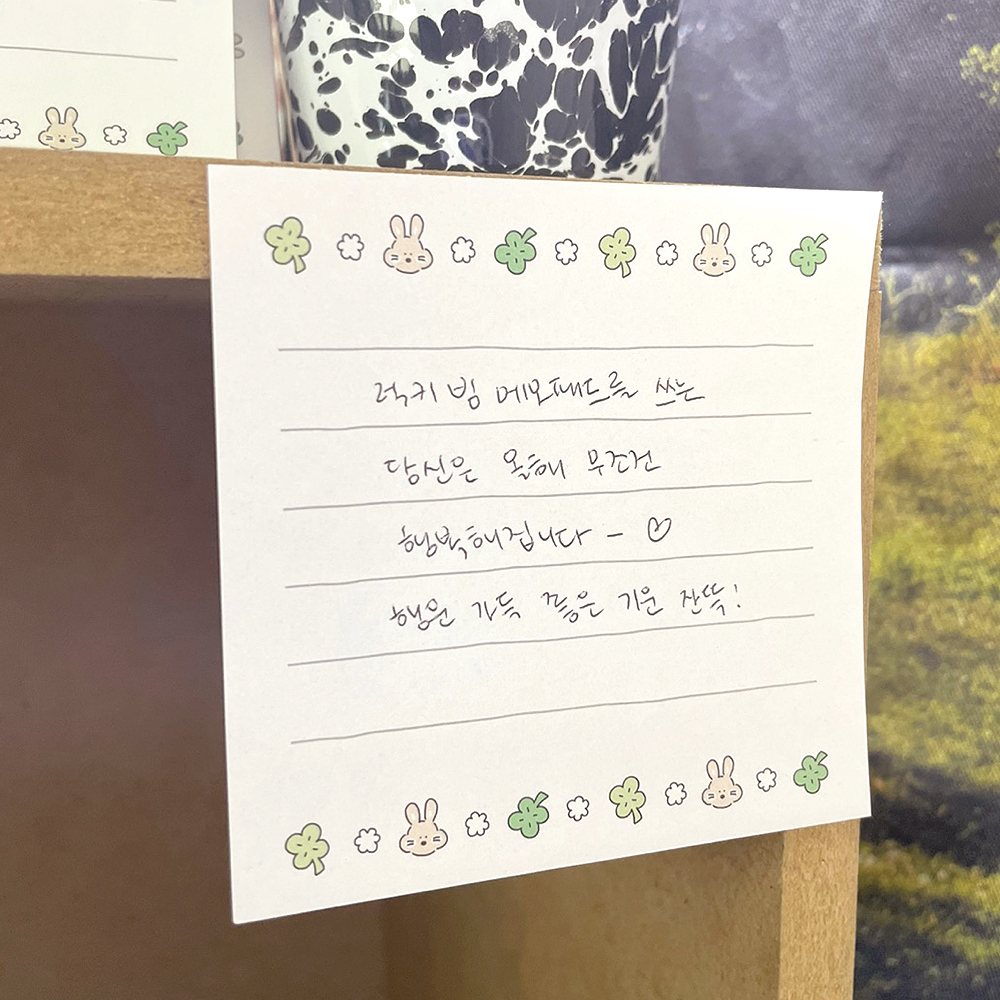 럭키 빔 메모패드를 쓰는
당신은 올해 무조건
행복해집니다 - ♡
행운 가득 좋은 기운 잔뜩!